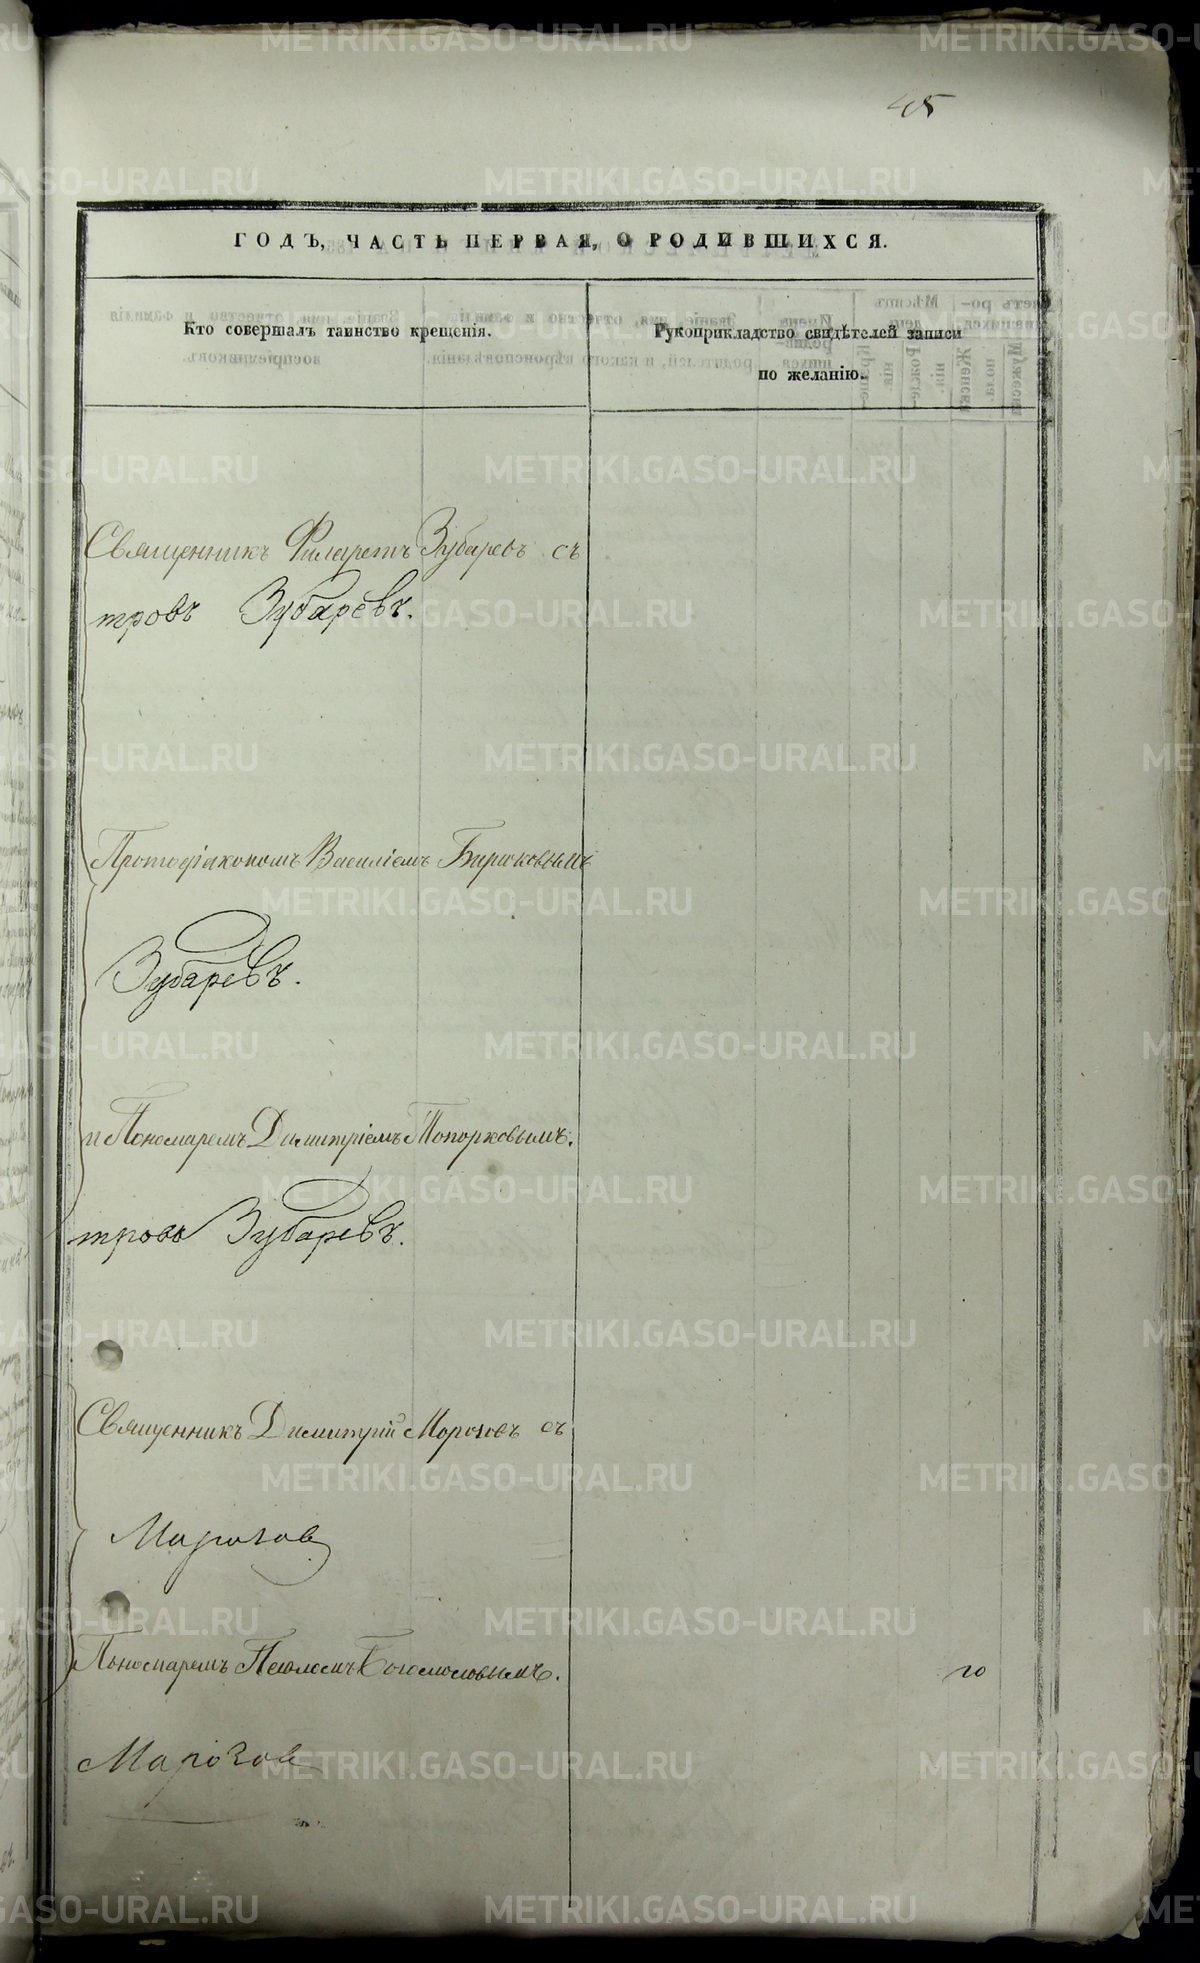 45
ГОДЪ, ЧАСТЬ ПЕРВАЯ, О РОДИВШИХСЯ.
Кто совершалъ таинство крещенія.
Рукоприкладство свидѣтелей записи
по желанію.
Священникъ Филаретъ Зубаревъ съ
тровъ Зубаревъ.
Протодіакономъ Василіемъ Бирюковымъ
Зубаревъ.
и Пономаремъ Димитріемъ Топорковымъ.
тровъ Зубаревъ.
Священникъ Димитрій Морозовъ съ
Морозов
Пономаремъ Богословымъ.
Морозов
METRIKI.GASO-URAL.RU